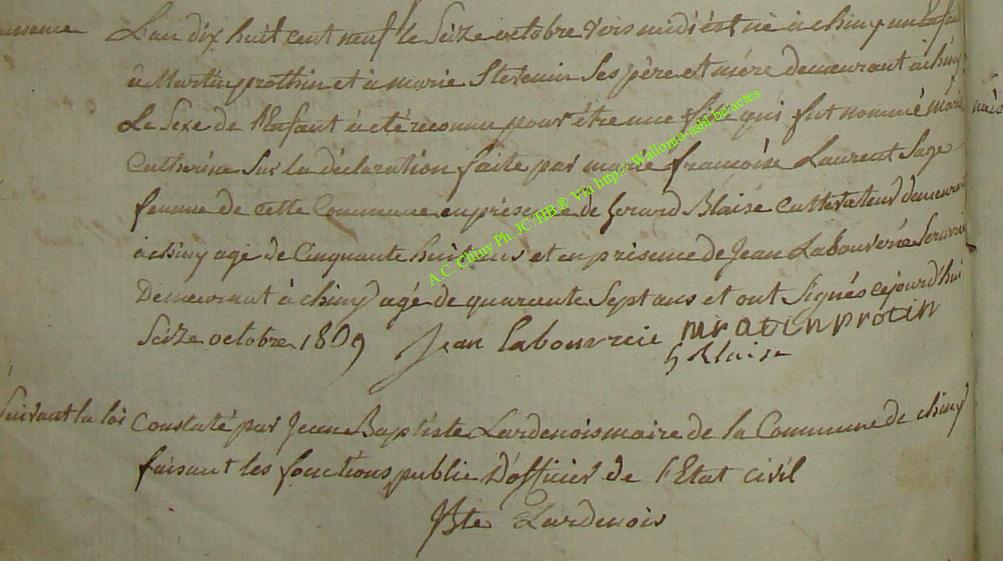 L'an dix huit cent neuf le Seize octobre vers midi est né à chiny un Enfant
à Martin prothin et à marie Stevenin Ses père et mére demeurant à chiny
Le Sexe de l'Enfant à été reconnu pour être une fille qui fut nommé marie
Catherine Sur la déclaration faite par marie françoise Laurent Sage
femme de cette Commune en présence de Gerard Blaise cultivateur demeurant
à chiny agé de Cinquante huit ans et en présence de Jean Labouverie
Demeurant à chiny agé de quarante Sept ans et ont Signés cejourd'hui
Seize octobre 1809 Jean Labouverie mratin protin
G Blaise
Suivant la loi Constaté par Jean Baptiste Lardenois maire de la Commune de chiny
faisant les fonctions public D'officier de l'Etat civil
JBte Lardenois
A.C. Chiny Ph. JC/HB ® Via http://Wallonia-asbl.be/actes